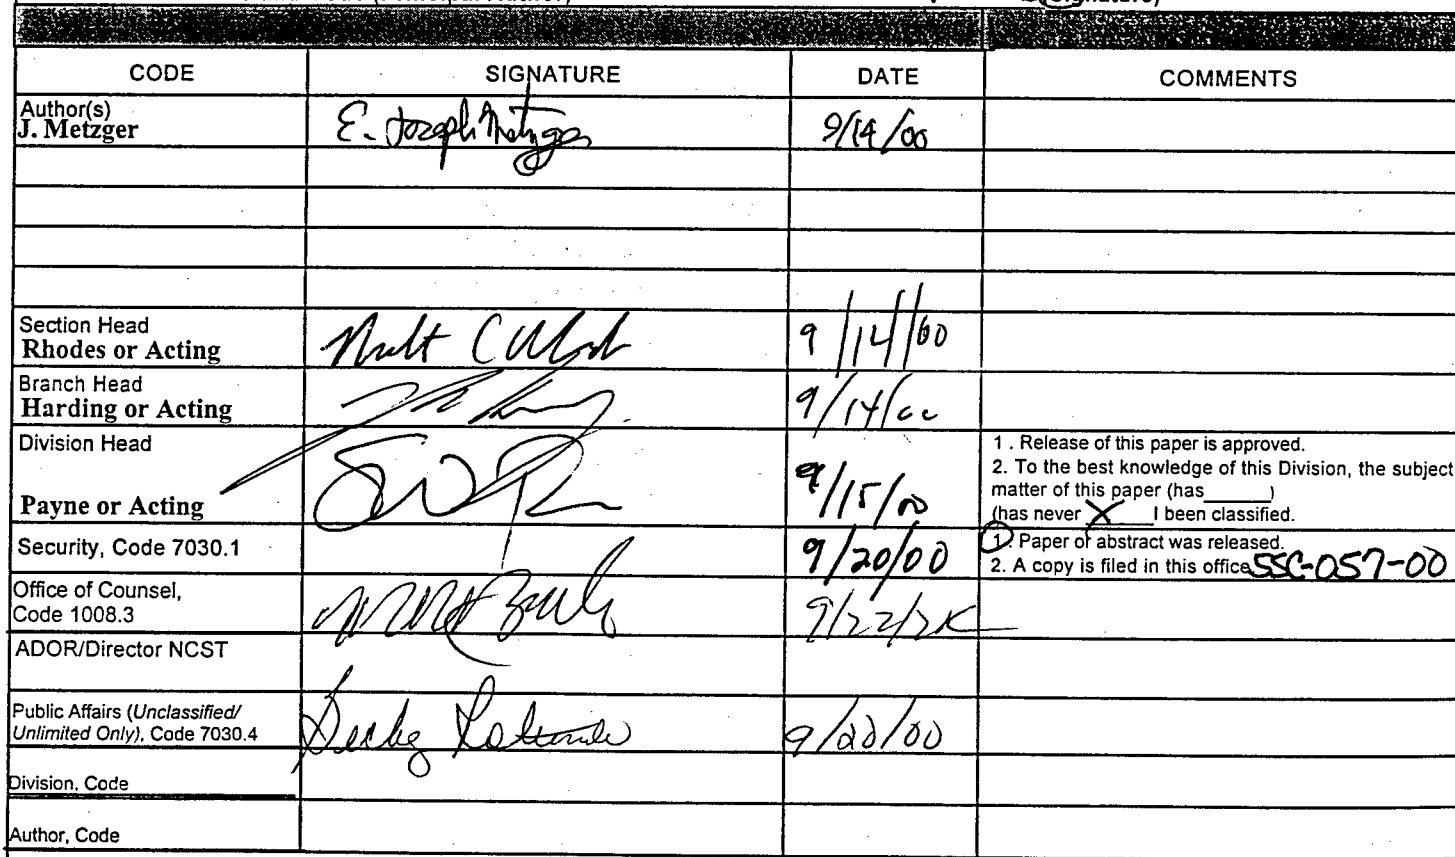 CODE SIGNATURE DATE COMMENTS
Author(s)
J. Metzger E. Joseph Metzger 9/14/00
Section Head
Rhodes or Acting 9/14/00
Branch Head
Harding or Acting 9/14/00
Division Head
Payne or Acting 9/15/00
1. Release of this paper is approved.
2. To the best knowledge of this Division, the subject
matter of this paper (has______)
(has never X____I been classified.
Security, Code 7030.1 9/20/00
1. Paper of abstract was released.
2. A copy is filed in this office SSC-057-00
Office of Counsel,
Code 1008.3 9/22/2K
ADOR/Director NCST
Public Affairs (Unclassified/
Unlimited Only), Code 7030.4 9/20/00
Division, Code
Author, Code